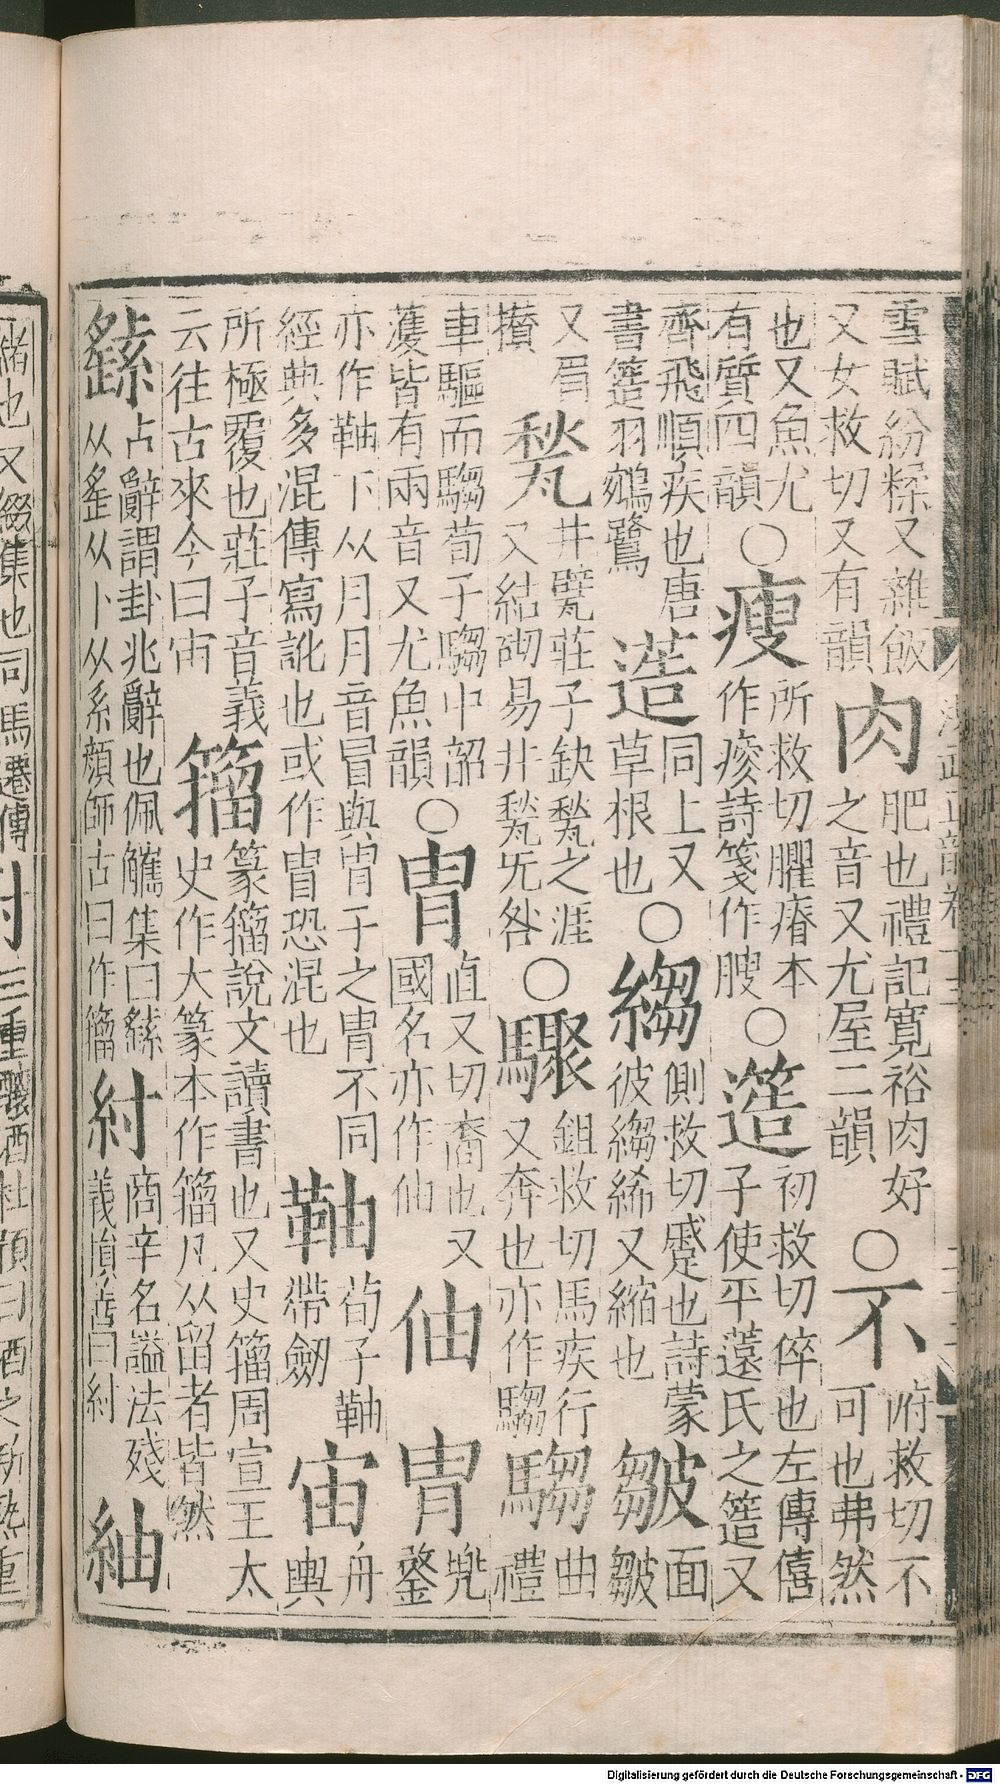 雪賦紛糅又雜飯
又女救切又有韻
肉
肥也禮記寬裕肉好
之音又尤屋二韻
○不
胕救切不
可也弗然
也又魚尤
有質四韻
○瘦
所救切臞瘠本
作瘐詩箋作䐹
○簉
初救切倅也左傳僖
子使平薳氏之簉又
齊飛順疾也唐
書簉羽鵷鷺
䔏
同上又
草根也
○縐
側救切蹙也詩蒙
彼縐絺又縮也
皺
面
皺
又眉
攅
甃
井甓莊子缺甃之涯
又結砌易井甃旡咎
○驟
鉏救切馬疾行
又奔也亦作騶
騶
曲
禮
車驅而騶荀子騶中韶
濩皆有兩音又尤魚韻
○冑
直又切裔也又
國名亦作伷
伷
冑
兜
鍪
亦作䩜下从月月音冒與冑子之冑不同
經典多混傳寫訛也或作冒恐混也
䩜
荀子䩜
帶劒
宙
舟
輿
所極覆也莊子音義
云往古來今曰宙
籀
篆籀說文讀書也又史籀周宣王太
史作大篆本作籀凡从留者皆然
繇
占辭謂卦兆辭也佩觿集曰繇
从䍃从卜从系顔師古曰作籀
紂
商辛名謚法殘
義損善曰紂
紬
緒也又綴集也司馬遷傳
酎
三重釀酒杜預曰酒之新熟重
Digitalisierung gefördert durch die Deutsche Forschungsgemeinschaft - DFG